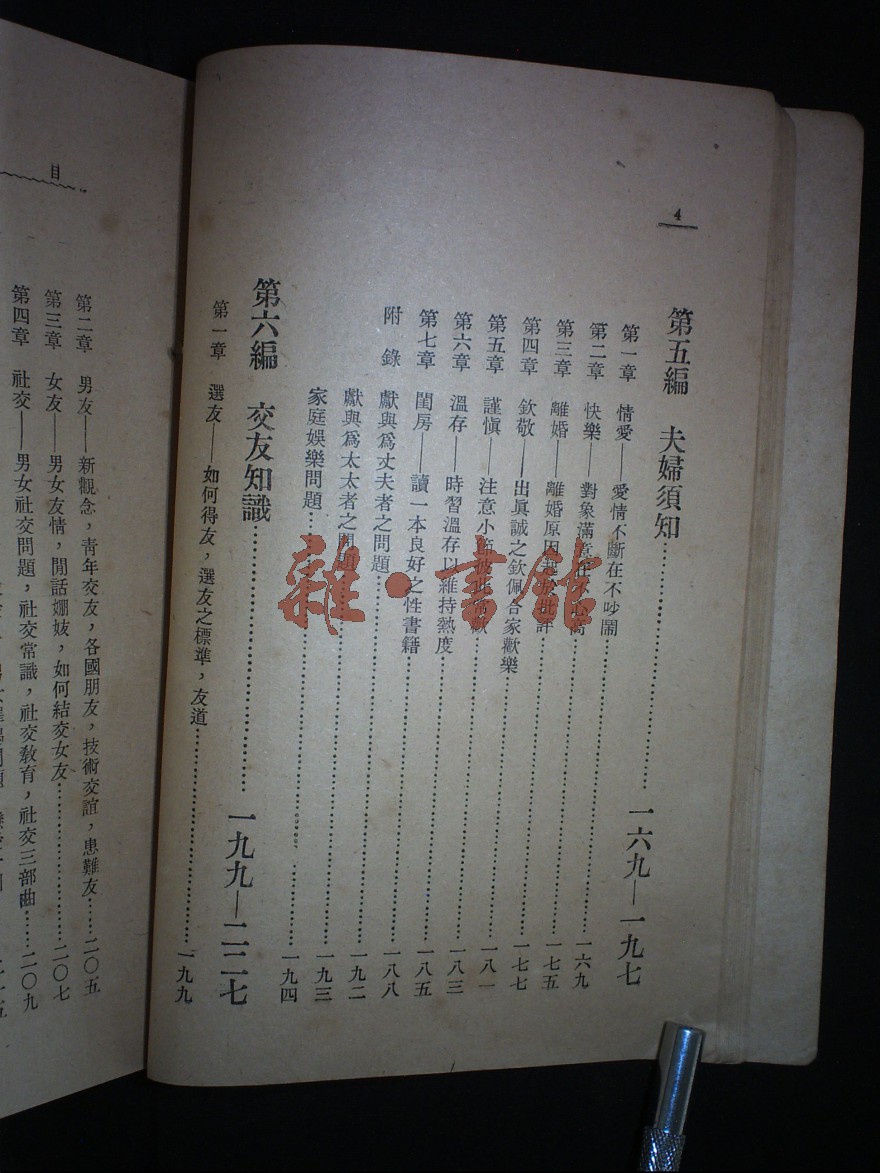 4
第五編 夫婦須知……………一六九—一九七
第一章 情愛——愛情不斷在不吵鬧……………一六九
第二章 快樂——對象滿意在不……………一七五
第三章 離婚——離婚原因起於批評……………一七七
第四章 欽敬——出眞誠之欽佩合家歡樂……………一八一
第五章 謹愼——注意小節彼此常歡……………一八三
第六章 溫存——時習溫存以維持熱度……………一八五
第七章 閨房——讀一本良好之性書籍……………一八八
附 錄 獻與爲丈夫者之問題……………一九二
獻與爲太太者之問題……………一九三
家庭娛樂問題……………一九四
第六編 交友知識……………一九九—二二七
第一章 選友——如何得友，選友之標準，友道……………一九九
目
第二章 男友——新觀念，靑年交友，各國朋友，技術交誼，患難友……二〇五
第三章 女友——男女友情，閒話姍妓，如何結交女友……………二〇七
第四章 社交——男女社交問題，社交常識，社交敎育，社交三部曲……二〇九
雜·書館